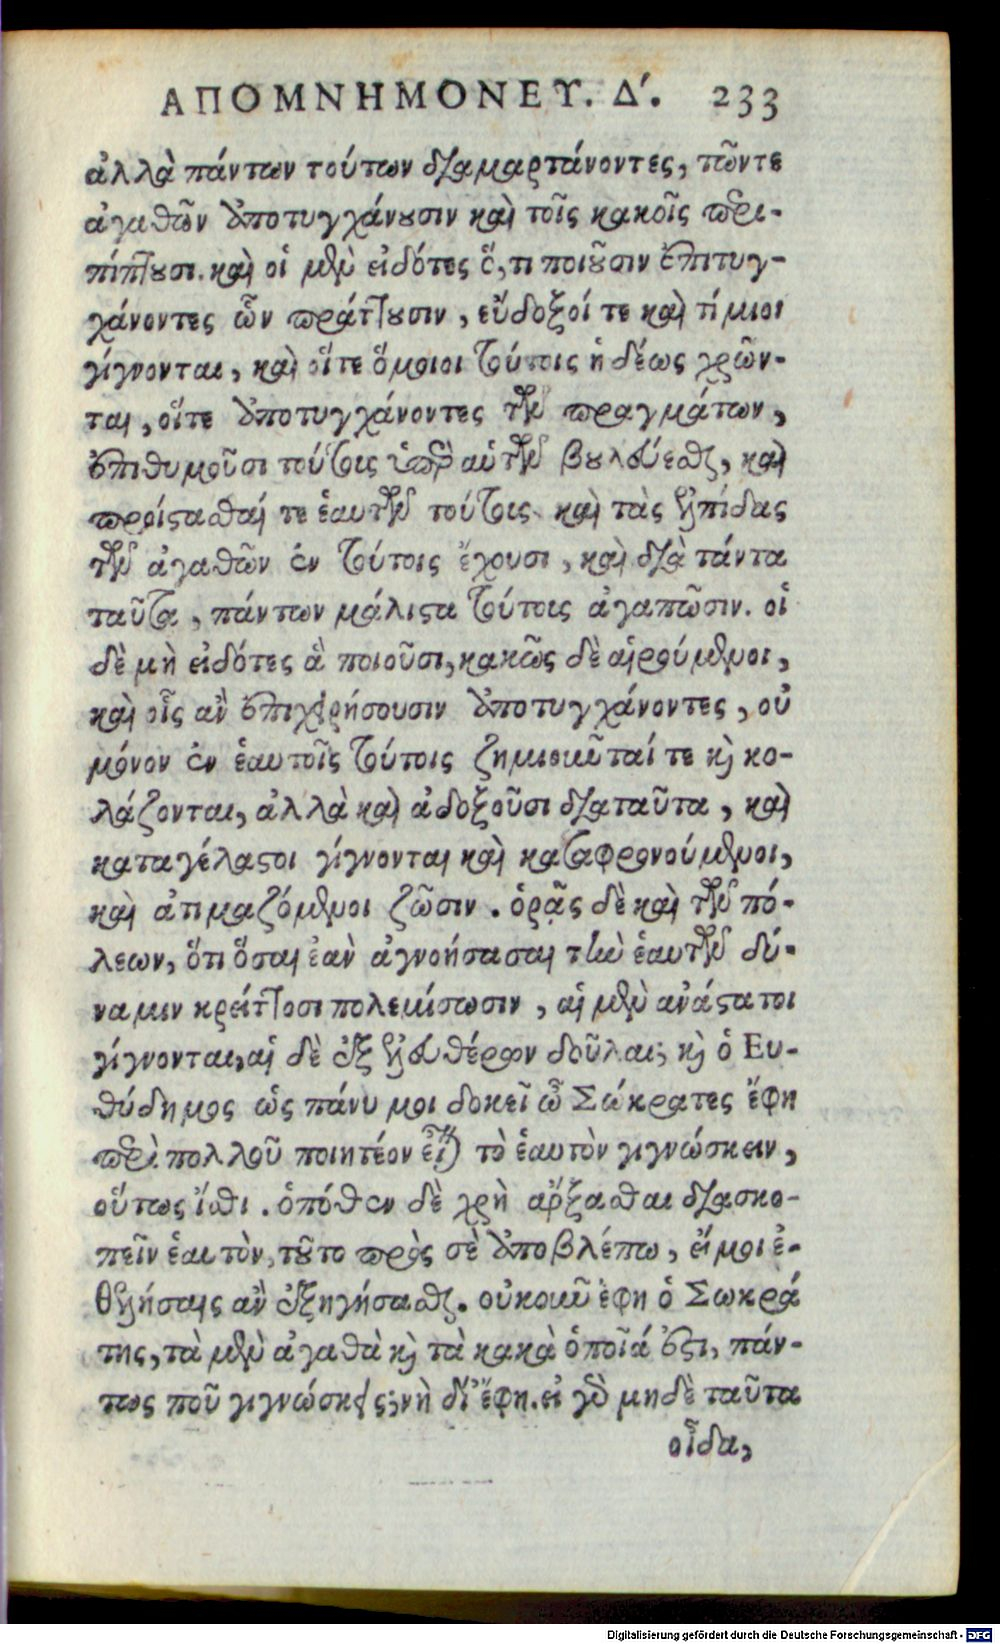 ΑΠΟΜΝΗΜΟΝΕΥ. Δ΄. 233
ἀλλὰ πάντων τούτων διαμαρτάνοντες, τῶντε
ἀγαθῶν ἀποτυγχάνουσιν καὶ τοῖς κακοῖς περι-
πίπτουσι. καὶ οἱ μὲν εἰδότες ὅ,τι ποιοῦσιν ἐπιτυγ-
χάνοντες ὧν πράττουσιν, εὔδοξοί τε καὶ τίμιοι
γίγνονται, καὶ οἵτε ὅμοιοι τούτοις ἡδέως χρῶν-
ται, οἵτε ἀποτυγχάνοντες τῶν πραγμάτων,
ἐπιθυμοῦσι τούτοις ὑπὲρ αὐτῶν βουλεύεσθαι, καὶ
προίστασθαί τε ἑαυτῶν τούτοις. καὶ τὰς ἐλπίδας
τῶν ἀγαθῶν ἐν τούτοις ἔχουσι, καὶ διὰ πάντα
ταῦτα, πάντων μάλιστα τούτοις ἀγαπῶσιν. οἱ
δὲ μὴ εἰδότες ἃ ποιοῦσι, κακῶς δὲ αἱρούμενοι,
καὶ οἷς ἂν ἐπιχειρήσουσιν ἀποτυγχάνοντες, οὐ
μόνον ἐν ἑαυτοῖς τούτοις ζημιοῦνταί τε καὶ κο-
λάζονται, ἀλλὰ καὶ ἀδοξοῦσι διαταῦτα, καὶ
καταγέλαστοι γίγνονται καὶ καταφρονούμενοι,
καὶ ἀτιμαζόμενοι ζῶσιν. ὁρᾷς δὲ καὶ τῶν πό-
λεων, ὅτι ὅσαι ἐὰν ἀγνοήσασαι τὴν ἑαυτῶν δύ-
ναμιν κρείττοσι πολεμίσωσιν, αἱ μὲν ἀνάστατοι
γίγνονται, αἱ δὲ ἐξ ἐλευθέρων δοῦλαι; καὶ ὁ Ευ-
θύδημος ὡς πάνυ μοι δοκεῖ ὦ Σώκρατες ἔφη
περὶ πολλοῦ ποιητέον εἶναι τὸ ἑαυτὸν γιγνώσκειν,
οὕτως ἴσθι. ὁπόθεν δὲ χρὴ ἄρξασθαι διασκο-
πεῖν ἑαυτὸν, τοῦτο πρὸς σὲ ἀποβλέπω, εἴ μοι ἐ-
θελήσαις ἂν ἐξηγήσασθαι. οὐκοῦν ἔφη ὁ Σωκρά
της, τὰ μὲν ἀγαθὰ καὶ τὰ κακὰ ὁποῖά ἐστι, πάν-
τως ποῦ γιγνώσκεις; νὴ δί' ἔφη. εἰ γὰρ μηδὲ ταῦτα
οἶδα,
Digitalisierung gefördert durch die Deutsche Forschungsgemeinschaft - DFG